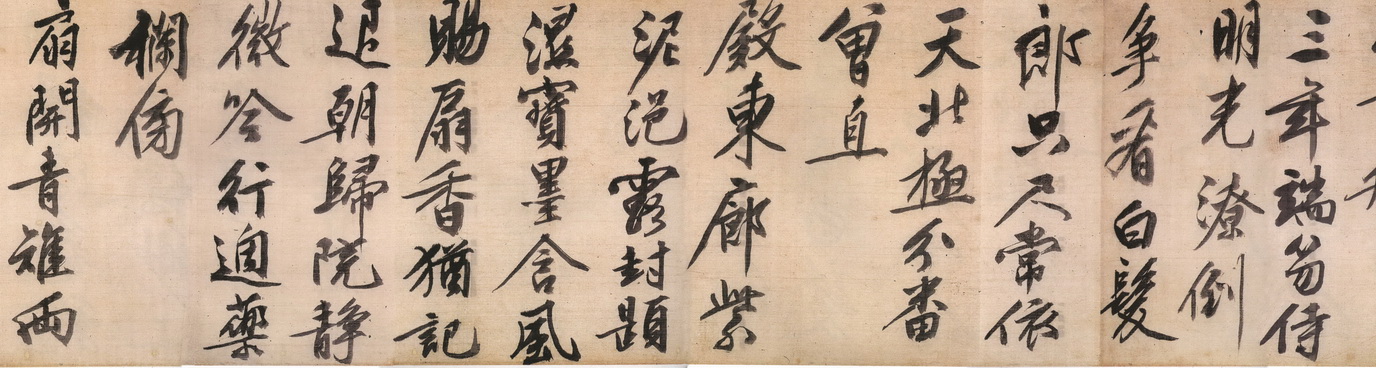 三年端笏侍
明光潦倒
争看白髮
郎只尺常依
天北極分番
曾直
殿東廊紫
泥浥露封題
濕寶墨含風
賜扇香猶記
退朝歸院静
微吟行遶藥
欄傍
扇開青雉兩